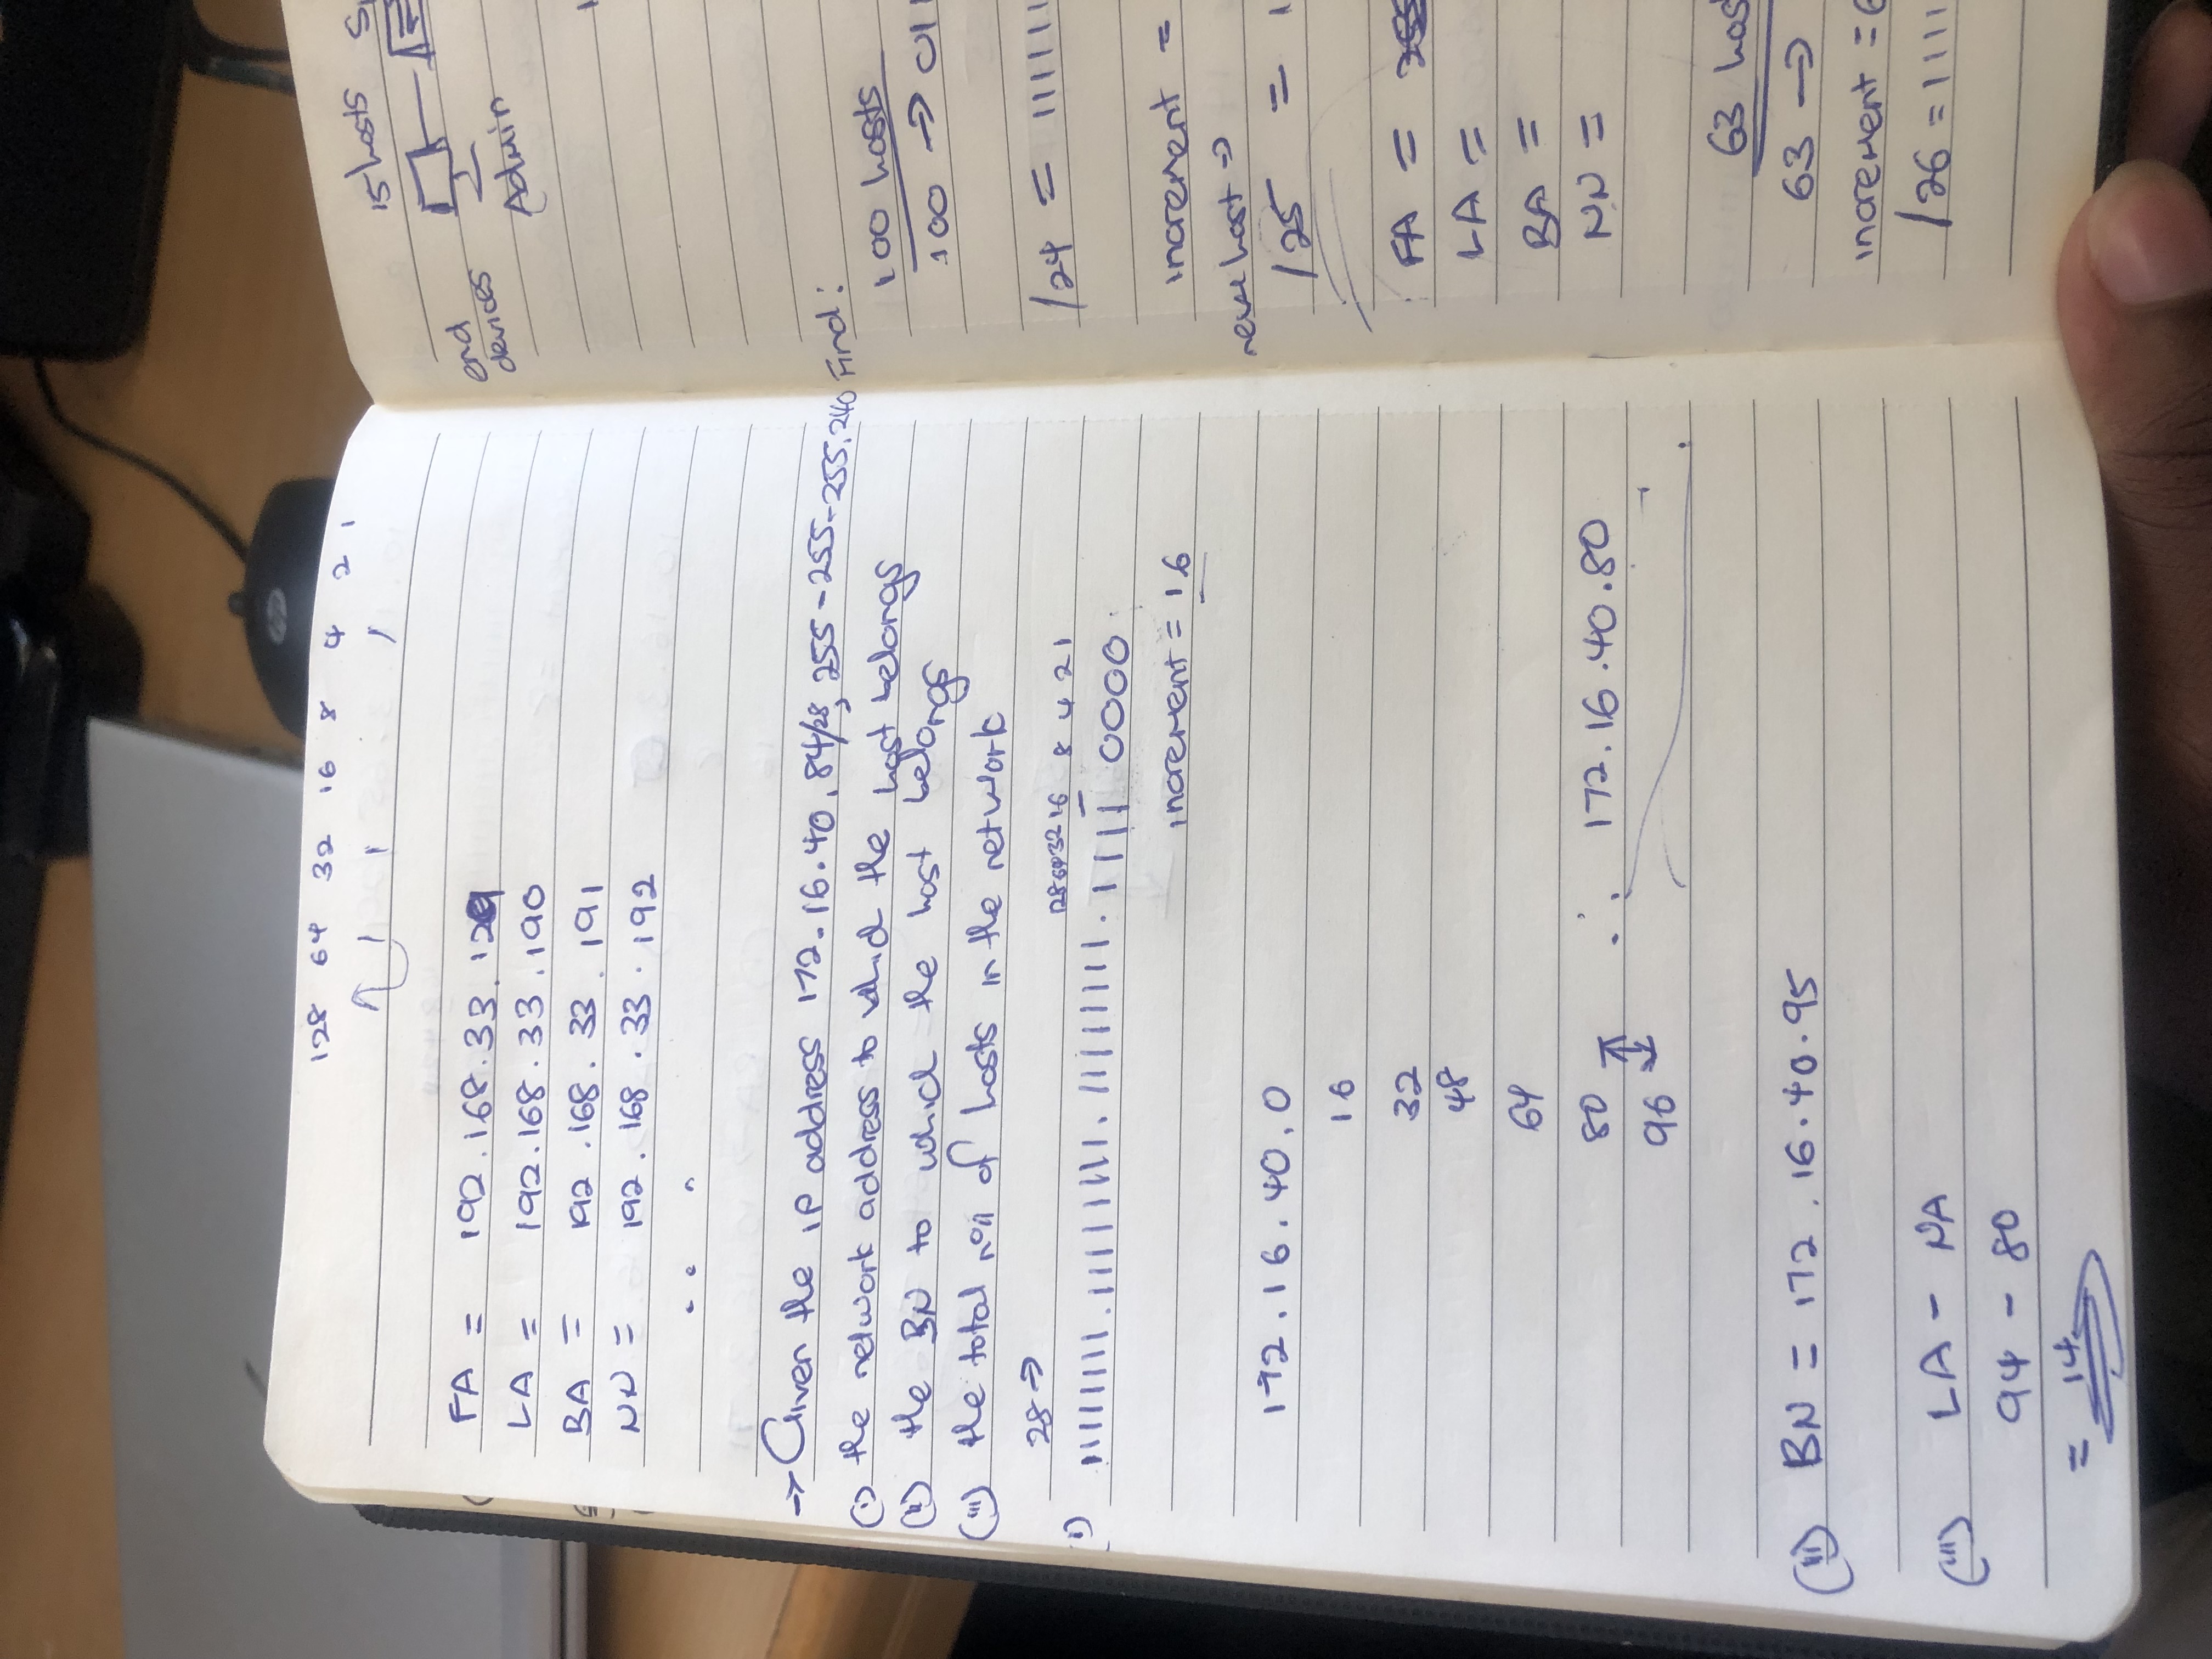 128 64 32 16 8 4 2 1
1 1 1
FA = 192.168.33.129
LA = 192.168.33.190
BA = 192.168.33.191
NN = 192.168.33.192
→ Given the IP address 172.16.40.84/28, 255-255-255.240 Find:
(i) the network address to which the host belongs
(ii) the BN to which the host belongs
(iii) the total no. of hosts in the network
28 →
128 64 32 16 8 4 2 1
i) 11111111.11111111.11111111.1111 0000
increment = 16
172.16.40.0
16
32
48
64
80 ∴ 172.16.40.80
96
(ii) BN = 172.16.40.95
(iii) LA - NA
94 - 80
= 14
15 hosts
end devices
Admin
100 hosts
100 → 011
/24 = 111111
increment =
host →
/25 = 1
FA = 255
LA =
BA =
NN =
63 hos
63 →
increment = 6
/26 = 1111